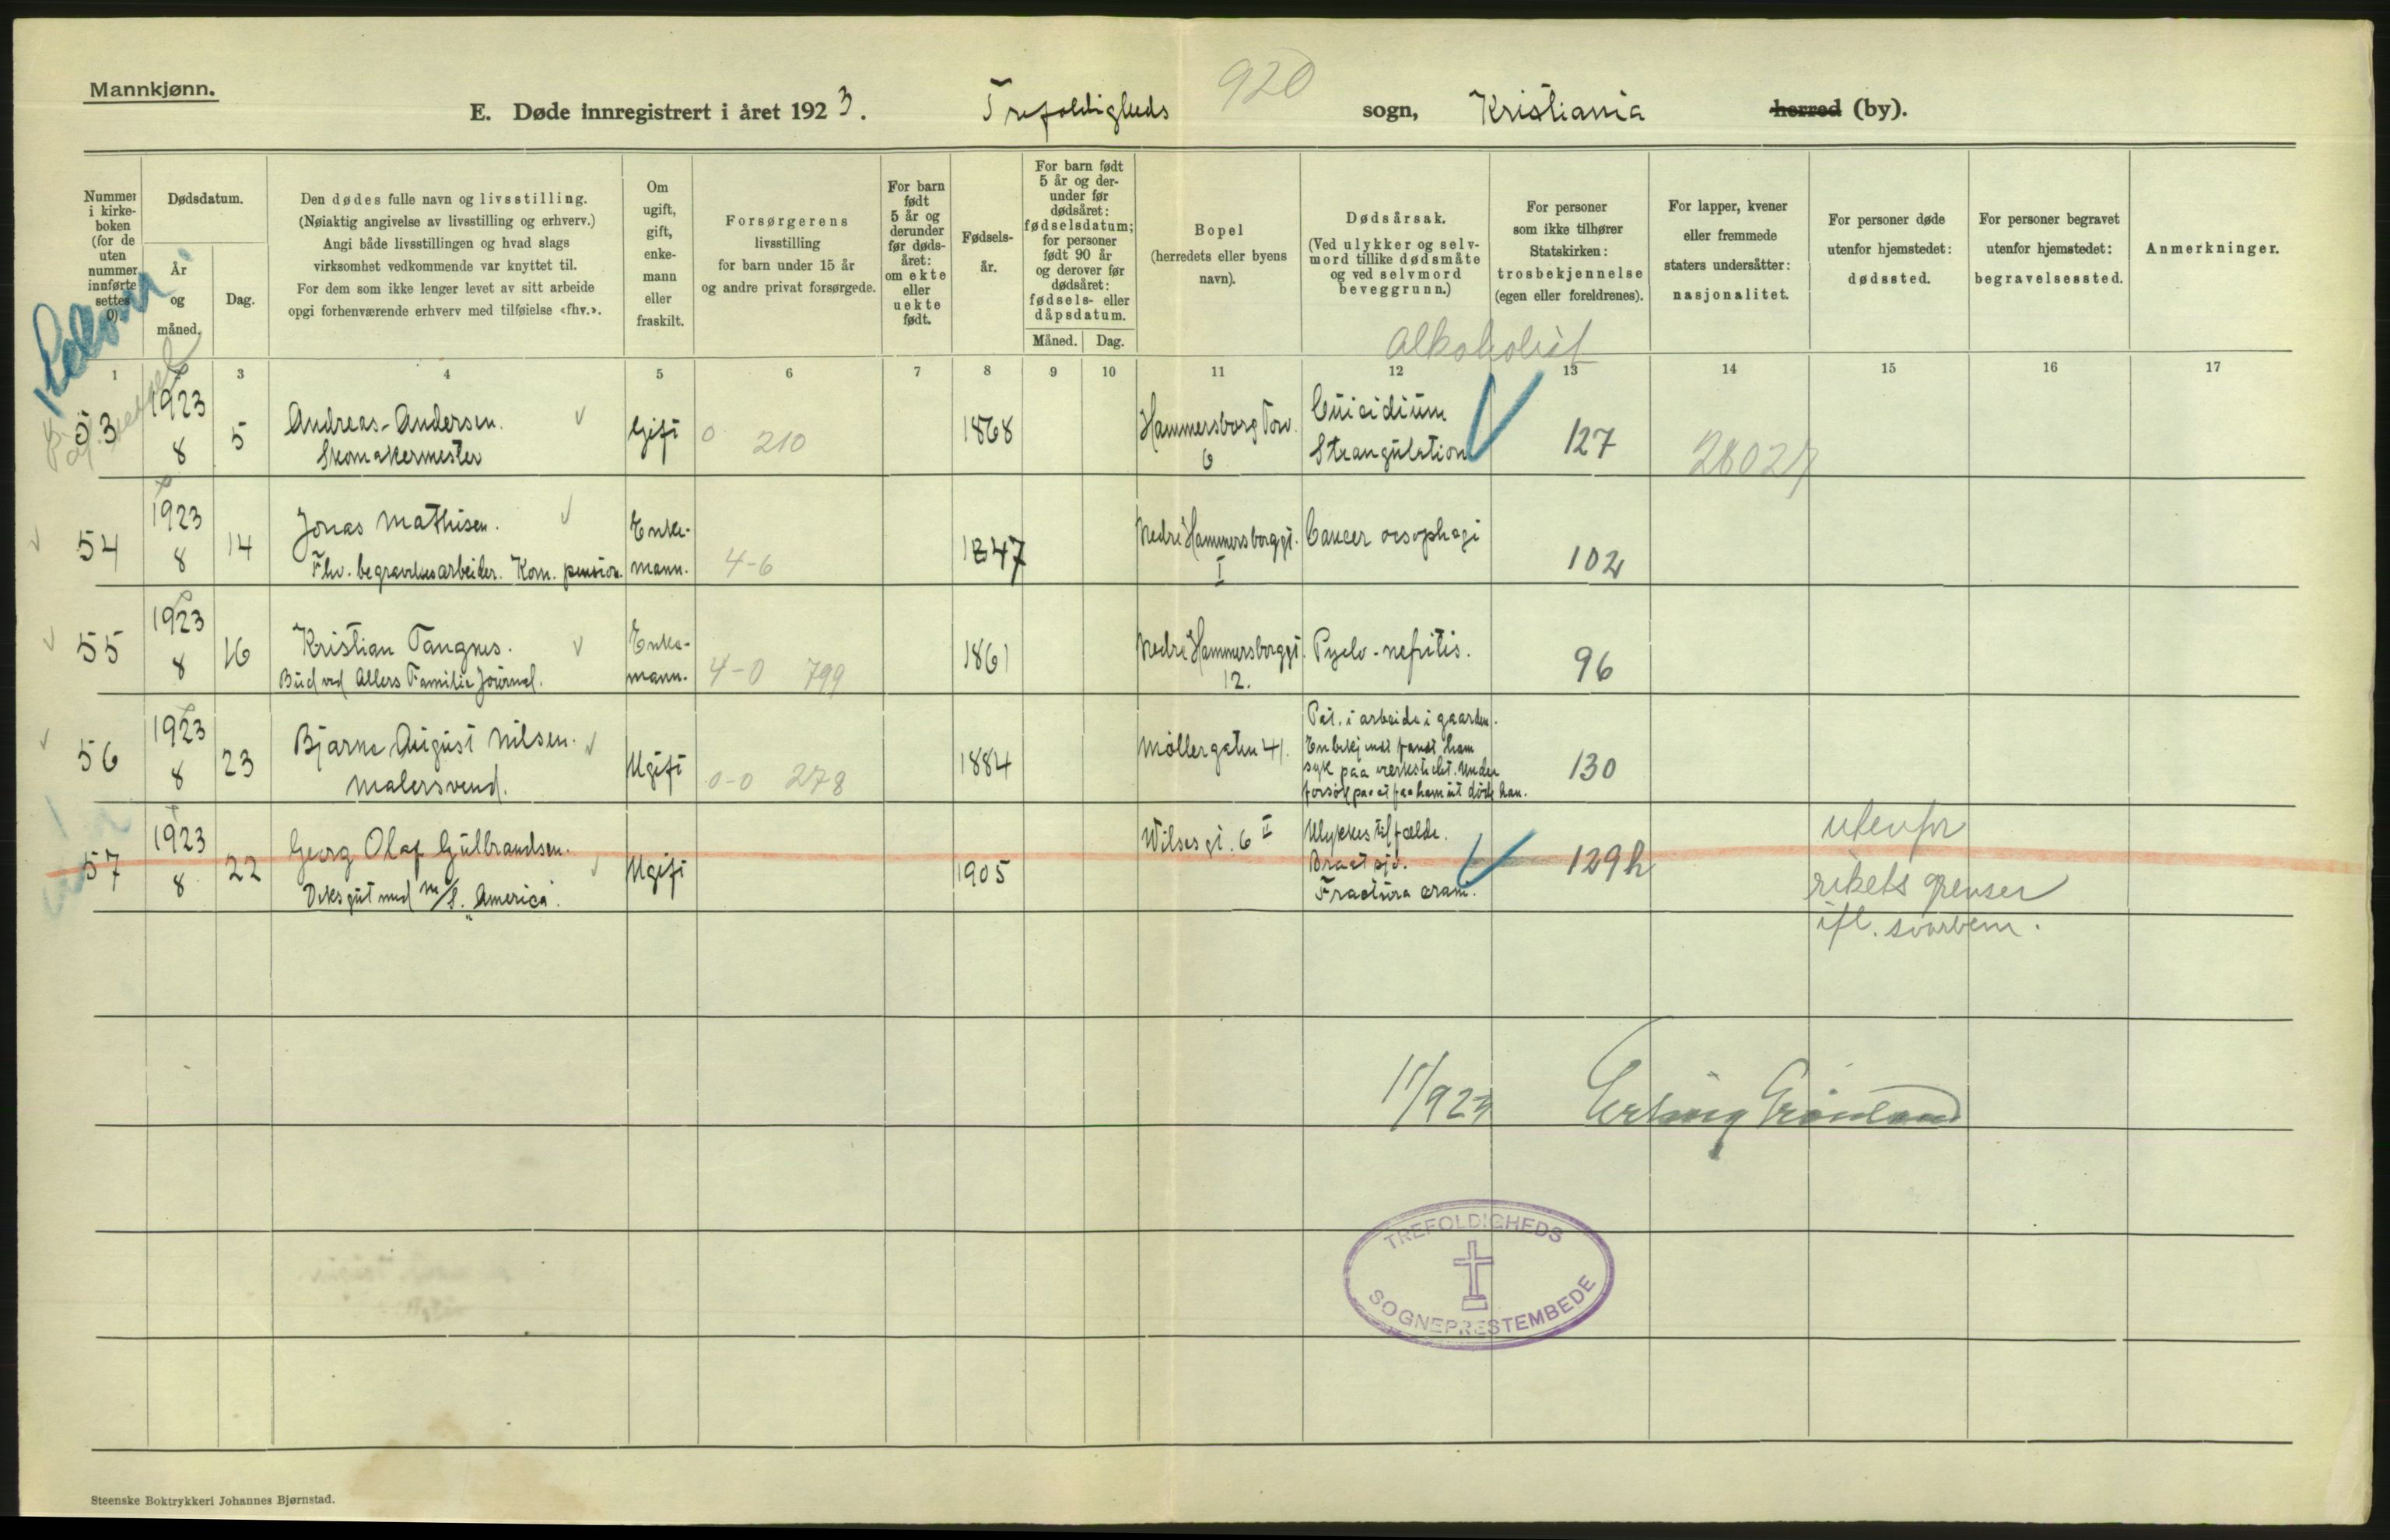 Mannkjønn.
E. Døde innregistrert i året 1923. Trefoldigheds 920 sogn, Kristiania herred (by).
Nummer i kirke-boken (for de uten nummer innførte settes 0).
Dødsdatum.
År og måned.
Dag.
Den dødes fulle navn og livsstilling.
(Nøiaktig angivelse av livsstilling og erhverv.)
Angi både livsstillingen og hvad slags
virksomhet vedkommende var knyttet til.
For dem som ikke lenger levet av sitt arbeide
opgi forhenværende erhverv med tilføielse «fhv.».
Om ugift, gift, enke-mann eller fraskilt.
Forsørgerens
livsstilling
for barn under 15 år
og andre privat forsørgede.
For barn født 5 år og derunder før døds-året: om ekte eller uekte født.
Fødsels-år.
For barn født 5 år og der-under før dødsåret: fødselsdatum; for personer født 90 år og derover før dødsåret: fødsels- eller dåpsdatum.
Måned. Dag.
Bopel
(herredets eller byens
navn).
Dødsårsak.
(Ved ulykker og selv-
mord tillike dødsmåte
og ved selvmord
beveggrunn.)
For personer
som ikke tilhører
Statskirken:
trosbekjennelse
(egen eller foreldrenes).
For lapper, kvener
eller fremmede
staters undersåtter:
nasjonalitet.
For personer døde
utenfor hjemstedet:
dødssted.
For personer begravet
utenfor hjemstedet:
begravelsessted.
Anmerkninger.
alkoholist
1 2 3 4 5 6 7 8 9 10 11 12 13 14 15 16 17
53 1923 8 5 Andreas Andersen.
Skomakermester
Gift 0 210 1868 Hammersborg Torv.
6
Suicidium
Strangulation
127 28027
54 1923 8 14 Jonas Mathisen.
Fhv. begravelsesarbeider. Kom. pension.
Enke-
mann.
4-6 1847 Nedre Hammersborggt.
I
Cancer oesophagi 102
55 1923 8 16 Kristian Tangnes.
Bud ved Allers Familie Journal.
Enke-
mann.
4-0 799 1861 Nedre Hammersborggt.
12.
Pyelo-nefritis. 96
56 1923 8 23 Bjarne August Nilsen.
Malersvend.
Ugift 0-0 278 1884 Møllergaten 41.
Pat. i arbeide i gaarden.
En bekjendt fandt ham
syk paa verkstedet. Under
forsøk paa at faa ham ut døde han.
130
57 1923 8 22 Georg Olaf Gulbrandsen.
Deksgut med M/S. "America".
Ugift 1905 Wilsesgt. 6 II
Ulykkestilfælde.
Fractura cranii.
129h
utenfor
rikets grenser
ifl. svarbem.
11/923 Erling Grønland
TREFOLDIGHEDS
SOGNEPRESTEMBEDE
Steenske Boktrykkeri Johannes Bjørnstad.